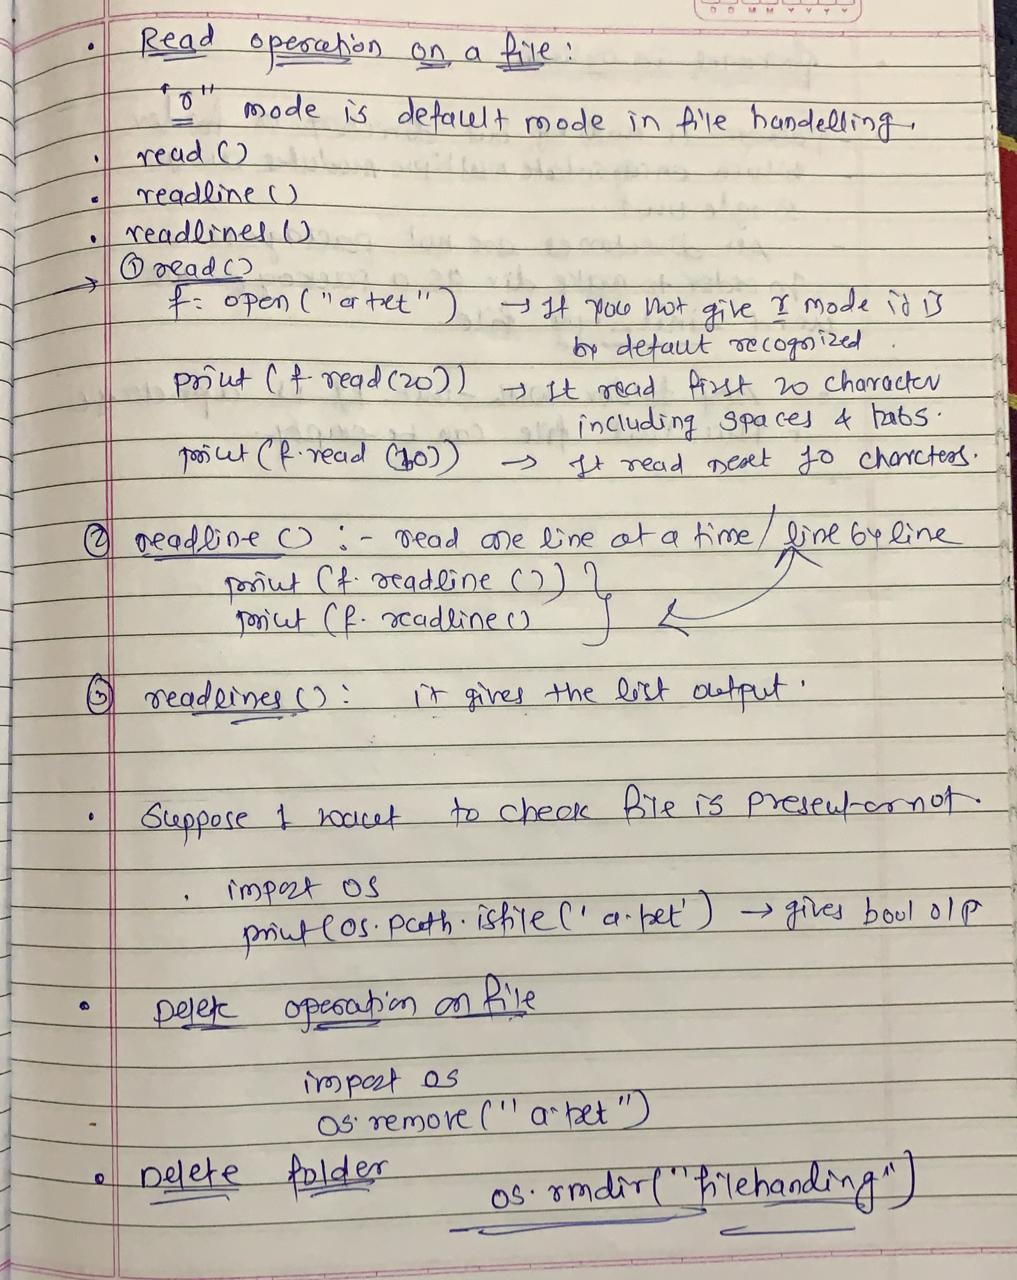 D D M M Y Y Y Y
• Read operation on a file:
"r" mode is default mode in file handelling.
• read ()
• readline ()
• readlines ()
→ ① read ()
f = open ("a.txt") → If you not give r mode it is
by defaut recognized.
print (f read(20)) → It read first 20 character
including spaces & tabs.
print (f.read (10)) → It read next 10 charcters.
② readline () :- read one line at a time / line by line
print (f. readline ())
print (f. readline ()
③ readlines (): it gives the list output.
• Suppose I want to check file is present or not.
. import os
print (os.path.isfile ('a.txt') → gives bool o/p
• Delete operation on file
import os
os.remove ("a.txt")
• Delete folder
os.rmdir("filehanding")